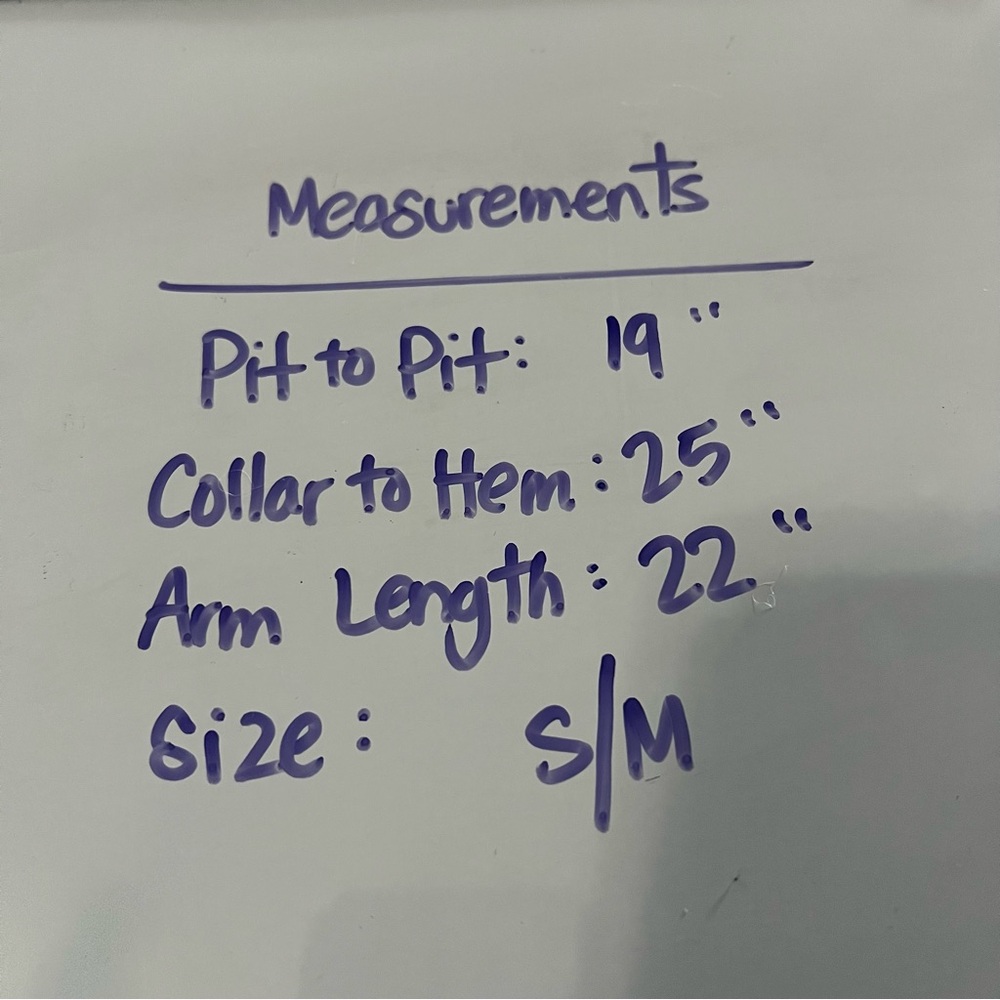 Measurements
Pit to Pit: 19"
Collar to Hem: 25"
Arm Length: 22"
Size: S/M